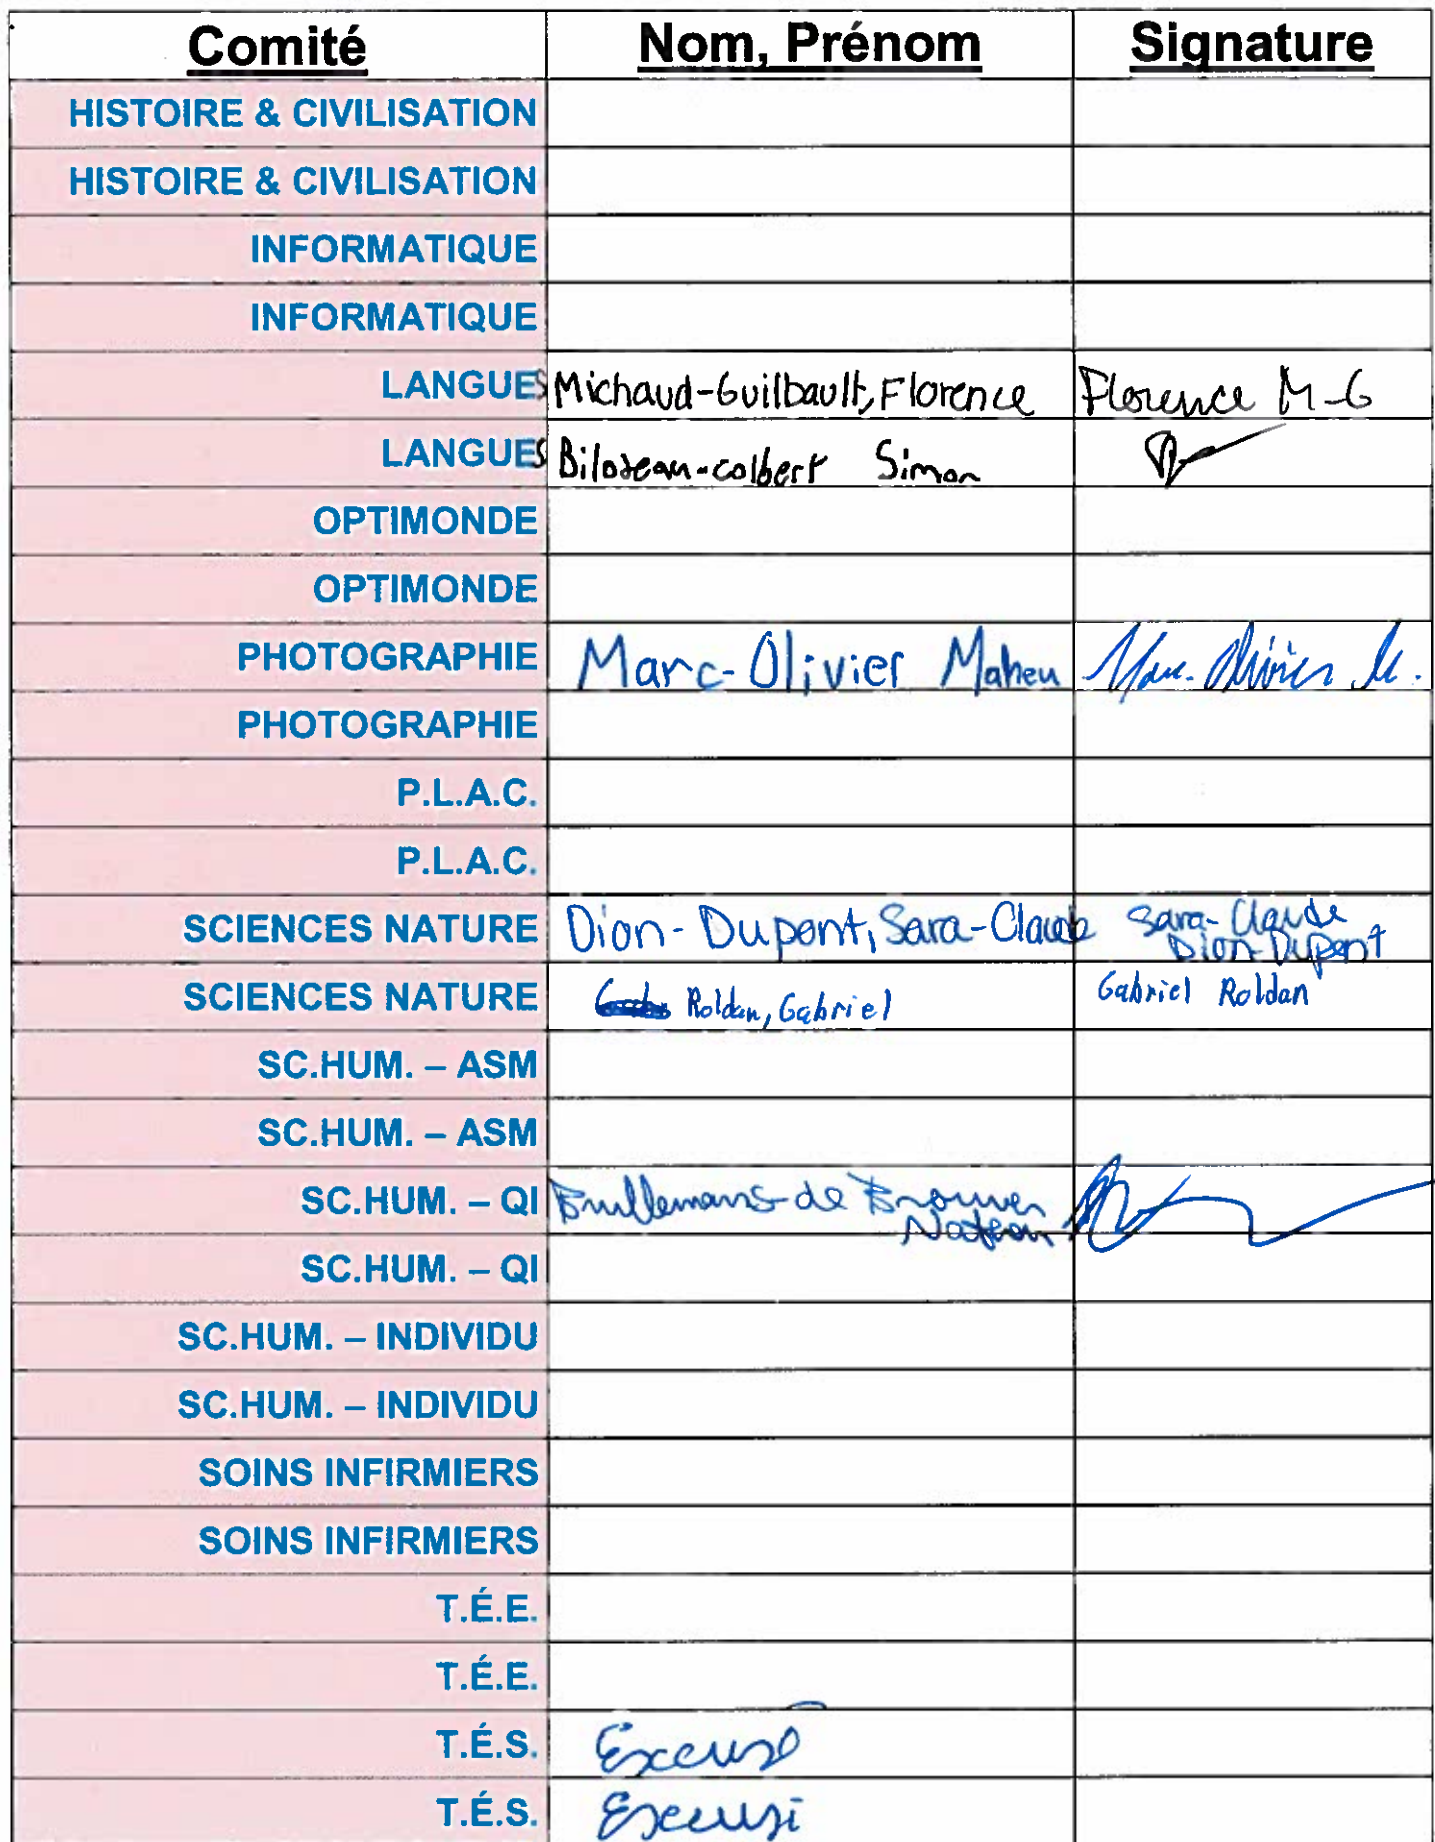 Comité Nom, Prénom Signature
HISTOIRE & CIVILISATION
HISTOIRE & CIVILISATION
INFORMATIQUE
INFORMATIQUE
LANGUES Michaud-Guilbault, Florence Florence M-G
LANGUES Bilodeau-colbert Simon
OPTIMONDE
OPTIMONDE
PHOTOGRAPHIE Marc-Olivier Maheu Marc-Olivier M.
PHOTOGRAPHIE
P.L.A.C.
P.L.A.C.
SCIENCES NATURE Dion-Dupont, Sara-Claude Sara-Claude
Dion-Dupont
SCIENCES NATURE Roldan, Gabriel Gabriel Roldan
SC.HUM. – ASM
SC.HUM. – ASM
SC.HUM. – QI de Brouwer
SC.HUM. – QI
SC.HUM. – INDIVIDU
SC.HUM. – INDIVIDU
SOINS INFIRMIERS
SOINS INFIRMIERS
T.É.E.
T.É.E.
T.É.S. Excusé
T.É.S. Excusé